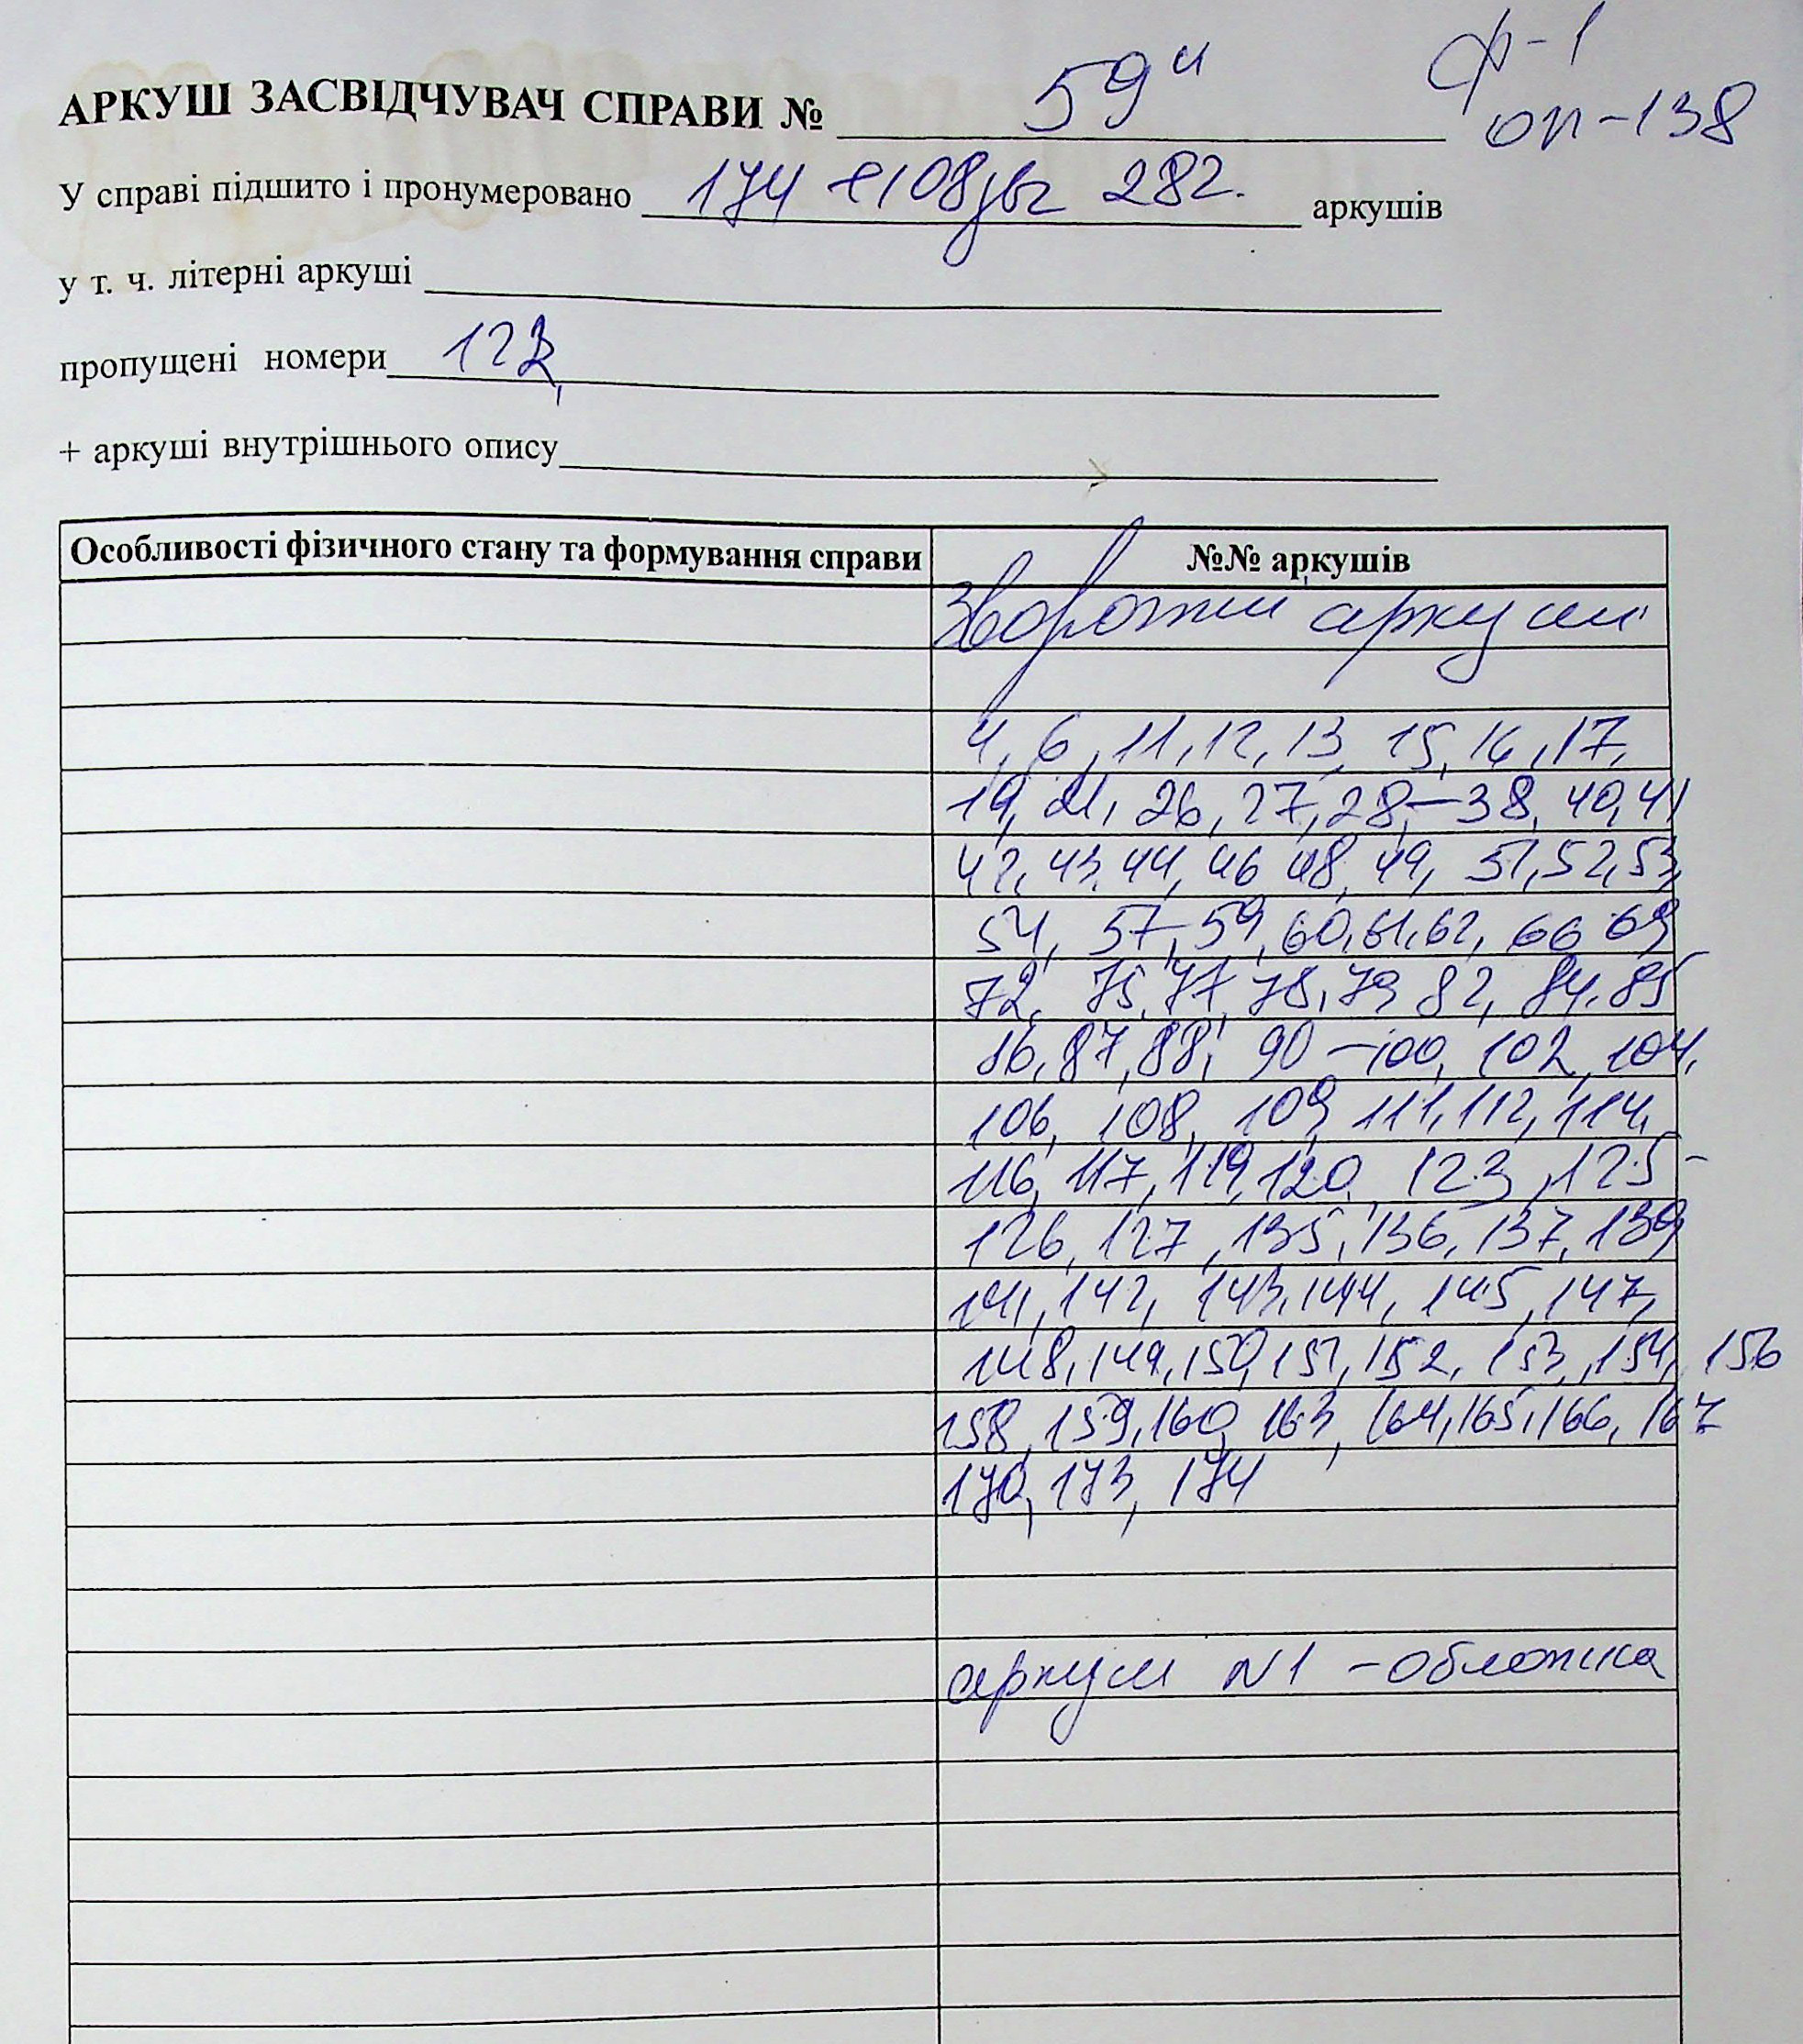 ф-1
оп-138
АРКУШ ЗАСВІДЧУВАЧ СПРАВИ № 59
У справі підшито і пронумеровано 174 108 282. аркушів
у т. ч. літерні аркуші
пропущені номери
+ аркуші внутрішнього опису
Особливості фізичного стану та формування справи №№ аркушів
Зворотні аркуші
4, 6, 11, 12, 13, 15, 16, 17,
19, 21, 26, 27, 28, - 38, 40, 41
42, 43, 44, 46 48, 49, 51, 52, 53,
54, 57, 59, 60, 61, 62, 66 69
72, 75, 77, 78, 79 82, 84, 85
86, 87, 88, 90 - 100, 102, 104,
106, 108, 109, 111, 112, 114,
116, 117, 119, 120, 123, 125 -
126, 127, 135, 136, 137, 139
141, 142, 143, 144, 145, 147,
148, 149, 150, 151, 152, 153, 154, 156
158, 159, 160, 163, 164, 165, 166, 167
170, 173, 174
аркуш N1 - обложка